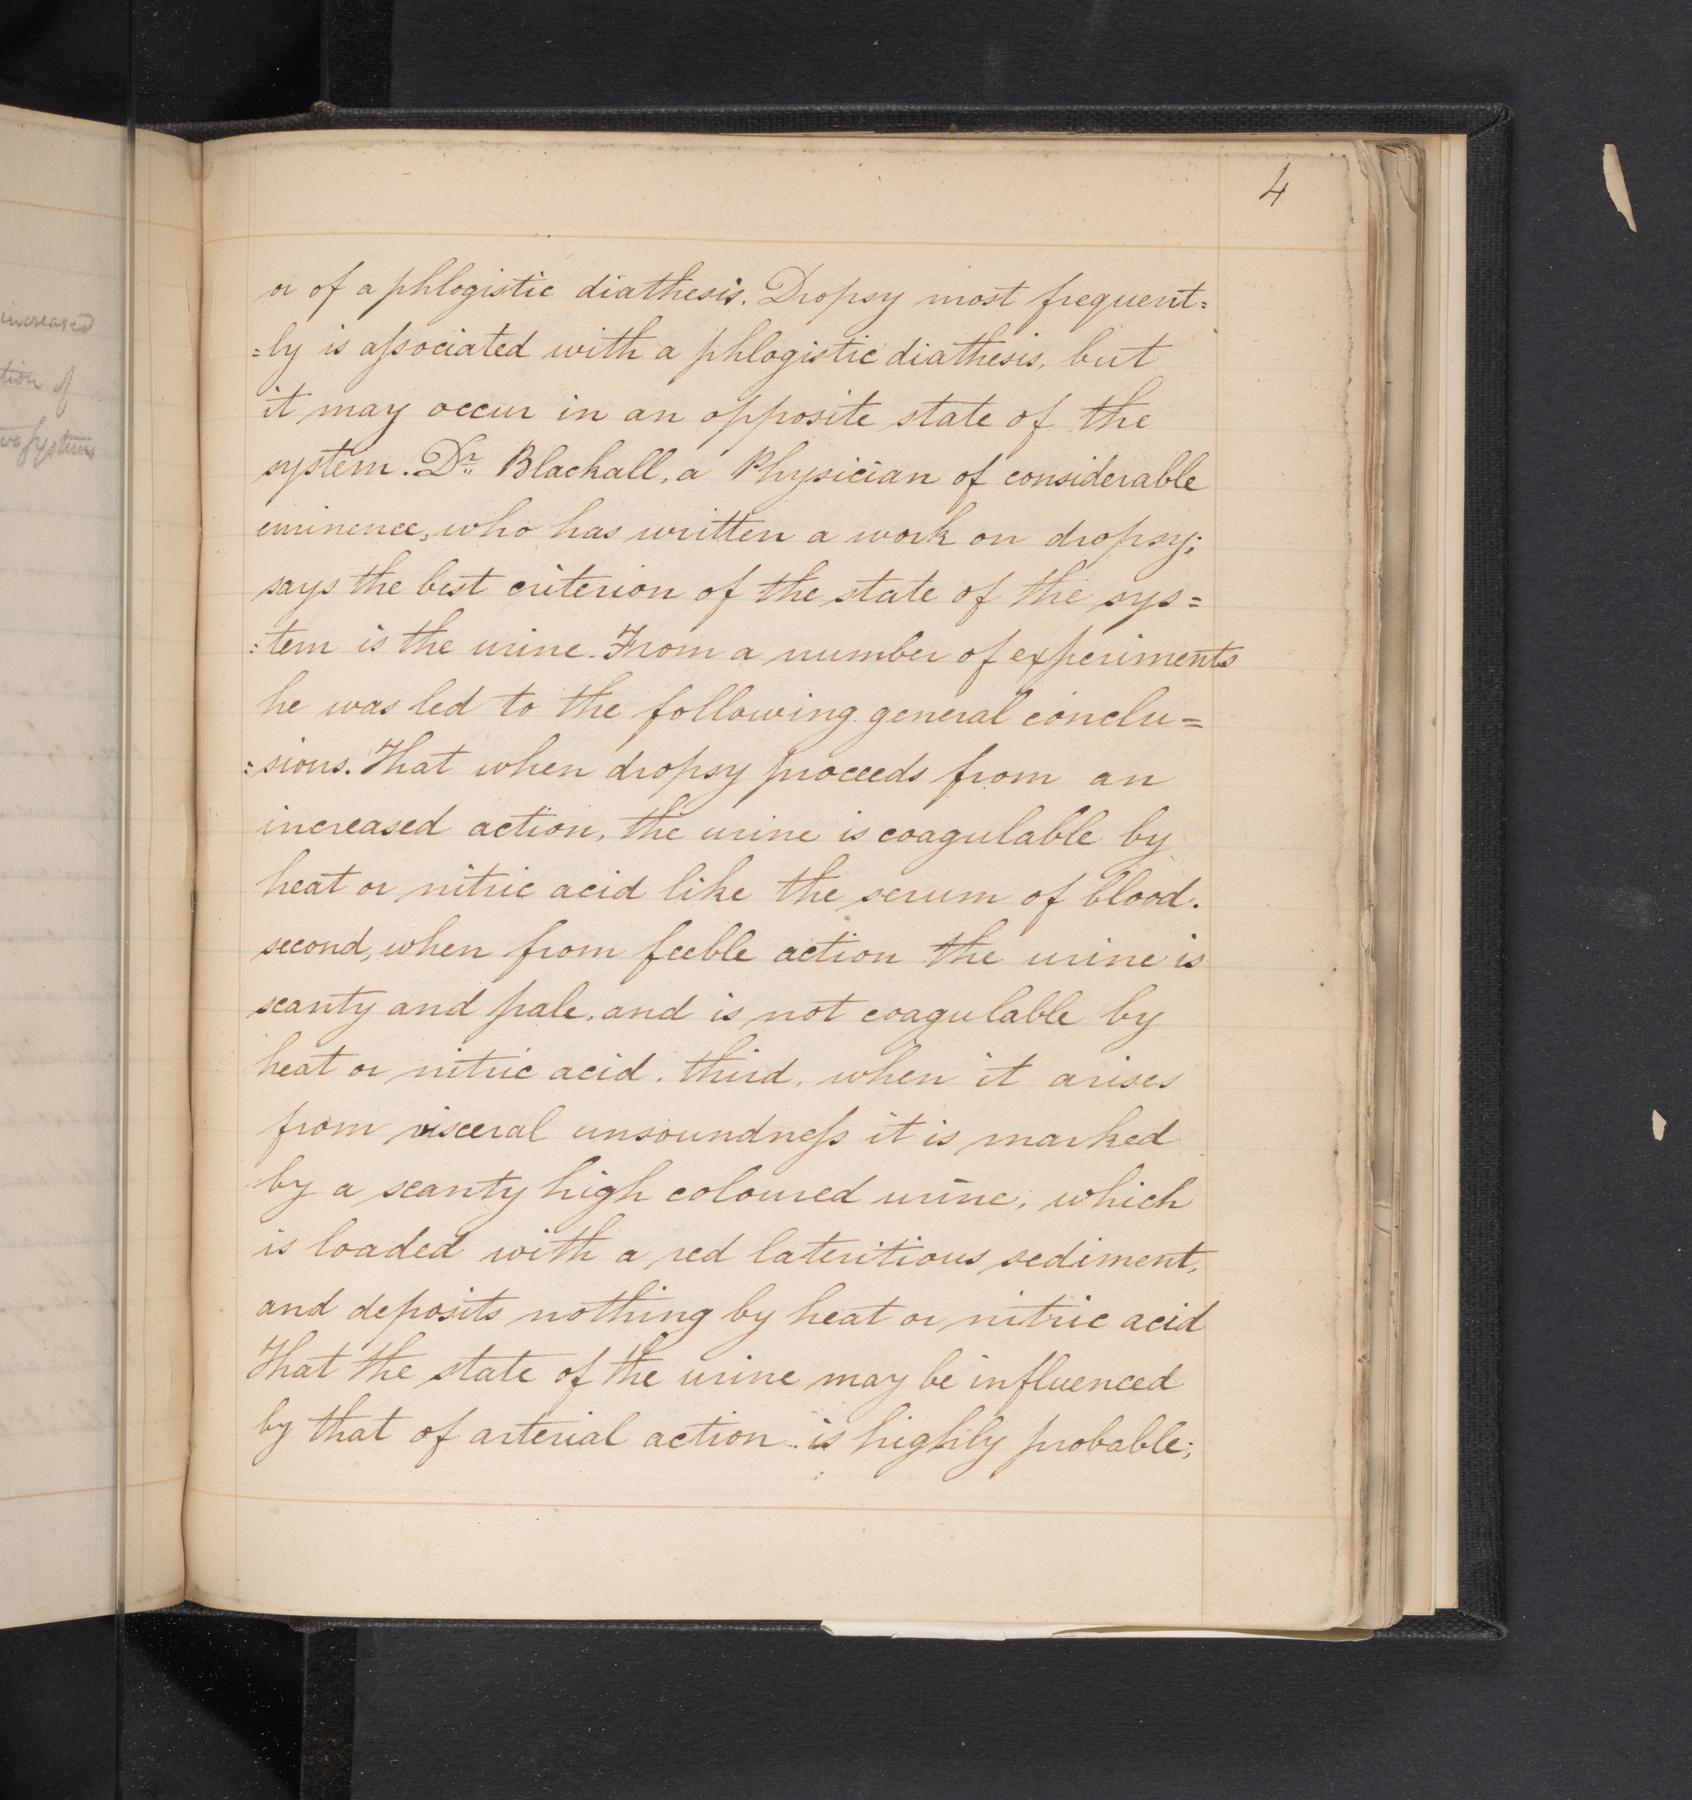 4
increased
tion of
systems
or of a phlogistic diathesis. Dropsy most frequent=
=ly is aſsociated with a phlogistic diathesis, but
it may occur in an opposite state of the
system. Dr. Blackall, a Physician of considerable
eminence, who has written a work on dropsy;
says the best criterion of the state of the sys=
=tem is the urine. From a number of experiments
he was led to the following general conclu=
=sions. That when dropsy proceeds from an
increased action, the urine is coagulable by
heat or nitric acid like the serum of blood.
second, when from feeble action the urine is
scanty and pale, and is not coagulable by
heat or nitric acid. third, when it arises
from visceral unsoundneſs it is marked
by a scanty high coloured urine, which
is loaded with a red lateritious sediment,
and deposits nothing by heat or nitric acid
That the state of the urine may be influenced
by that of arterial action is highly probable;